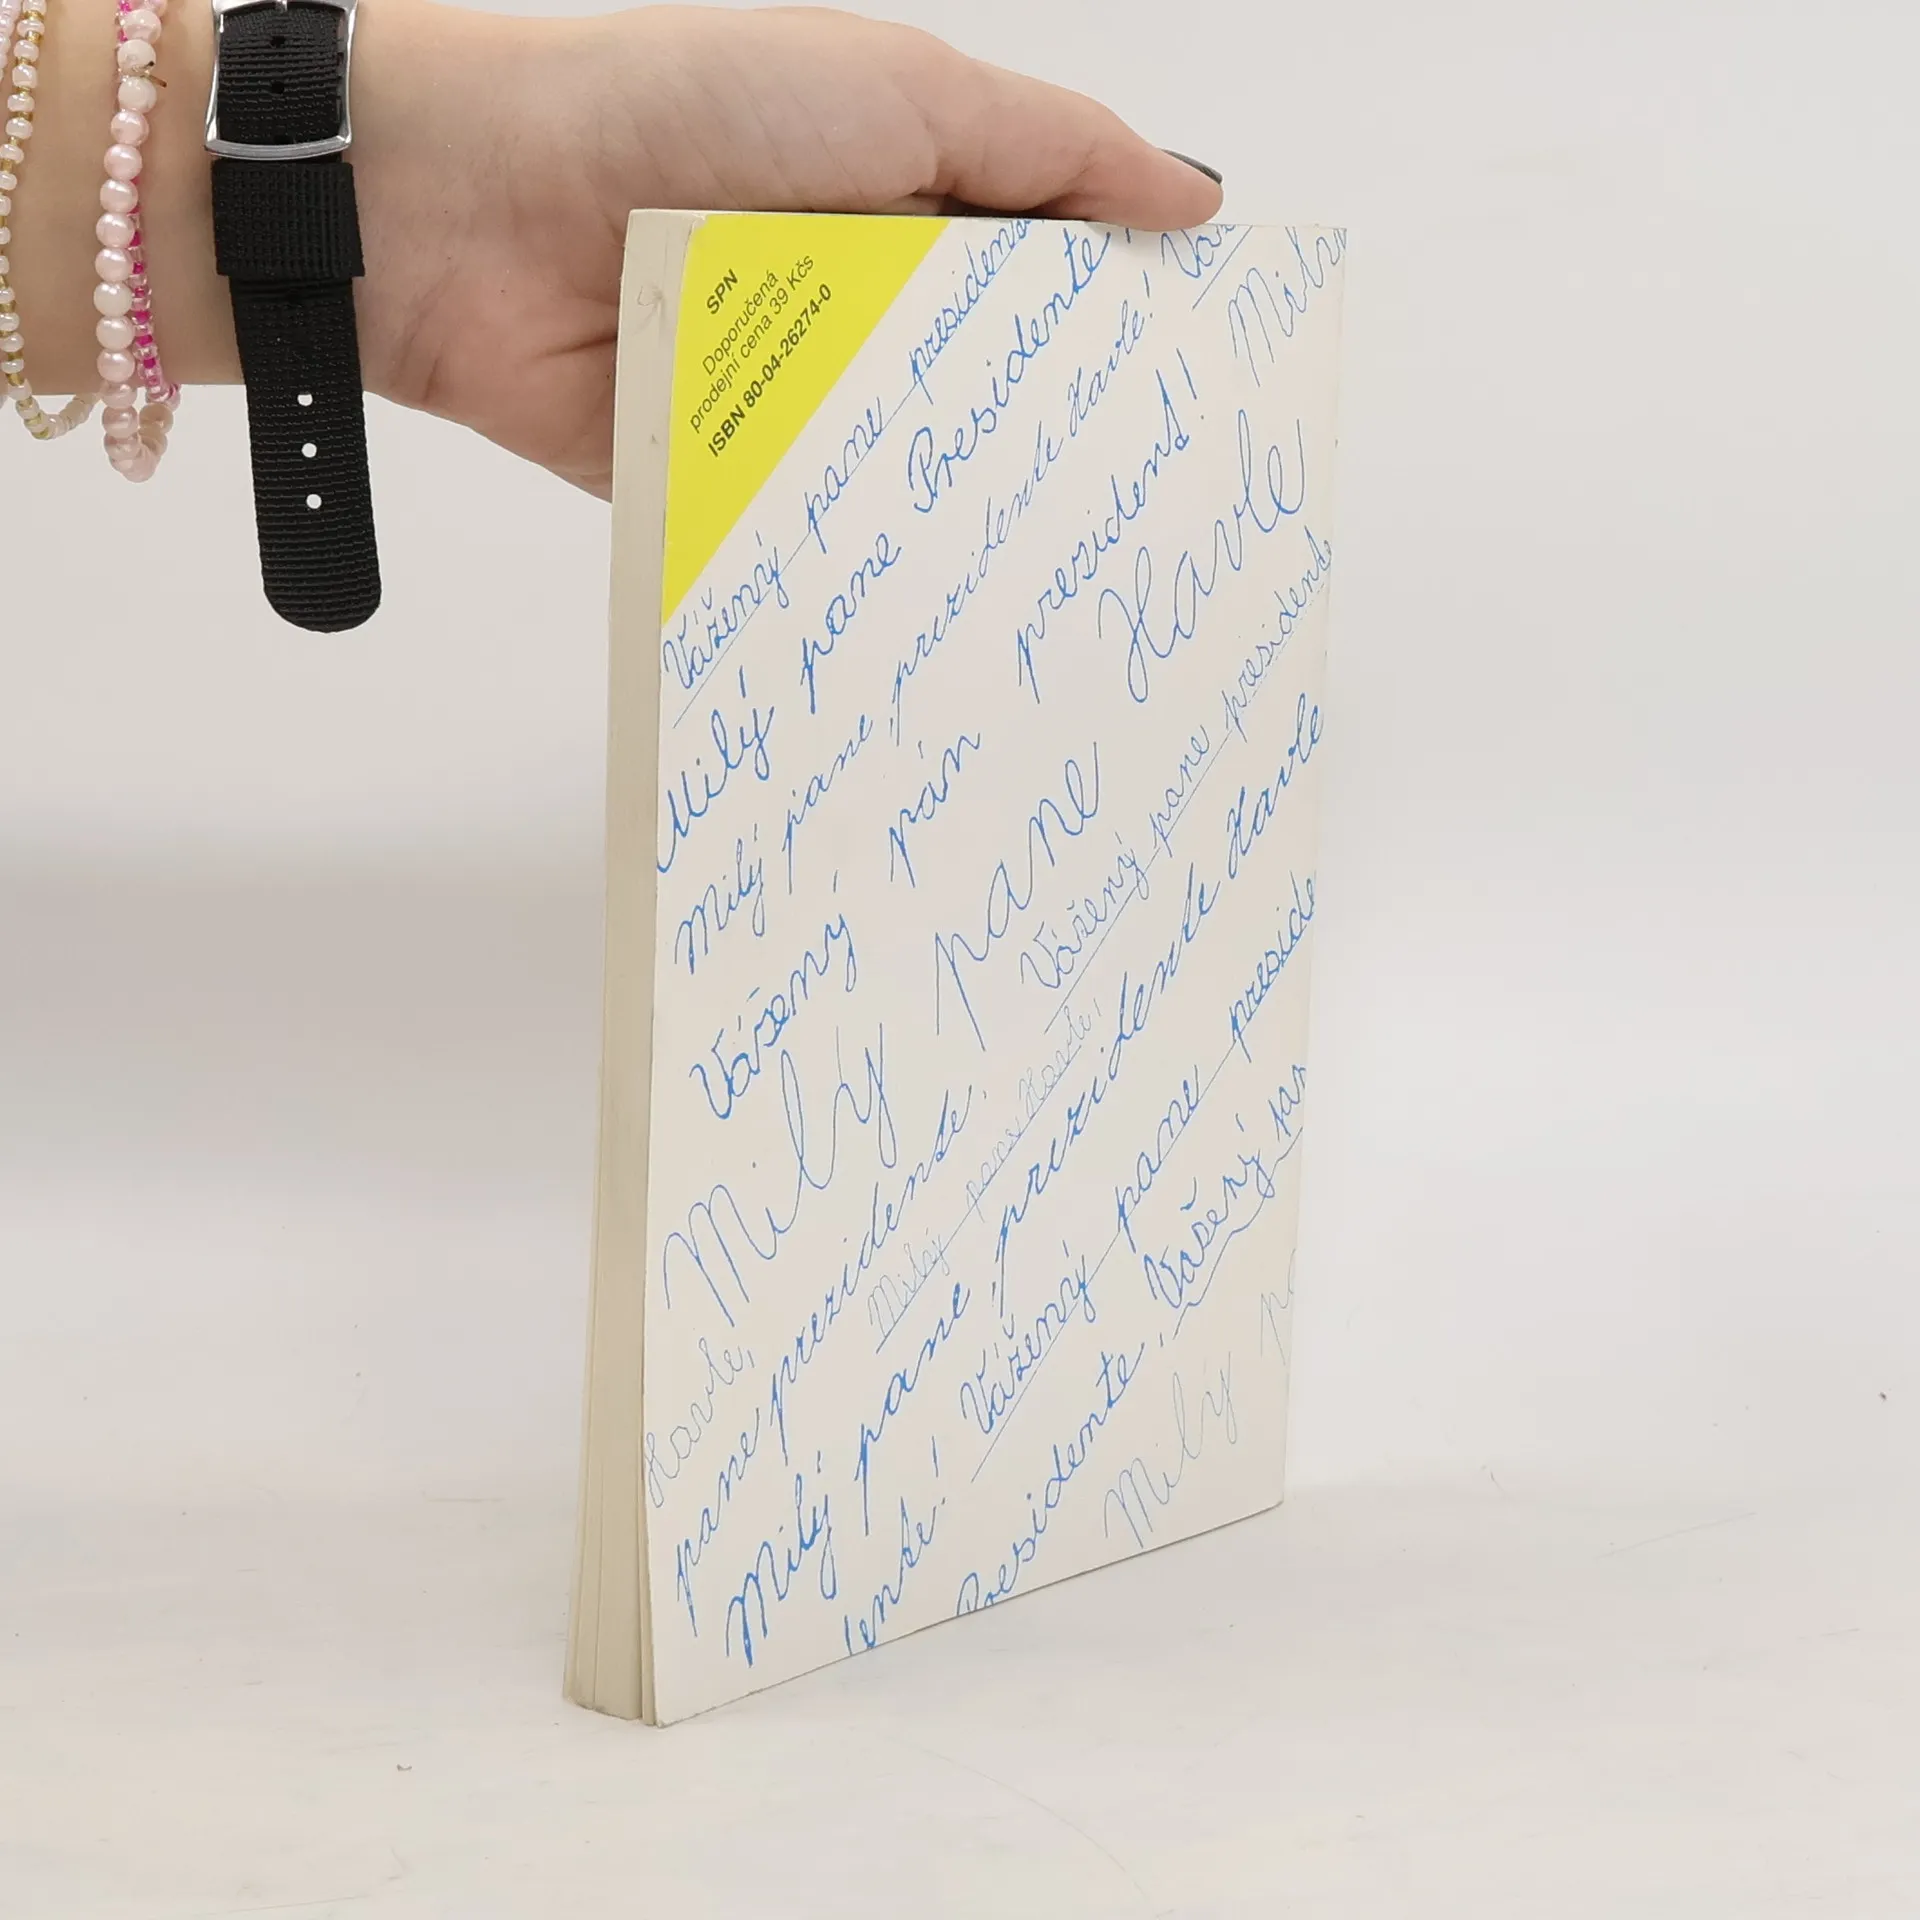 SPN
Doporučená
prodejní cena 39 Kčs
ISBN 80-04-26274-0
Vážený pane presidente
Milý pane Presidente!
Milý pane prezidente Havle!
Vážený pán prezident!
Milý pane Havle
Vážený pane presidente
Havle,
pane prezidente.
Milý pane Havle,
Milý pane prezidente Havle
Vážený pane
Presidente
Vášený
Milý